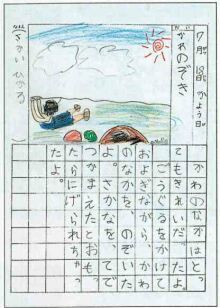 7月18日 かよう日
かわのぞき
(さかい ひかる)
かわのなかはとっ
てもきれいだったよ。
ごうぐるをかけて
およぎながら、かわ
のなかを、のぞいた
よ。さかなを、てで
つかまえたとおもっ
たらにげられちゃっ
たよ。